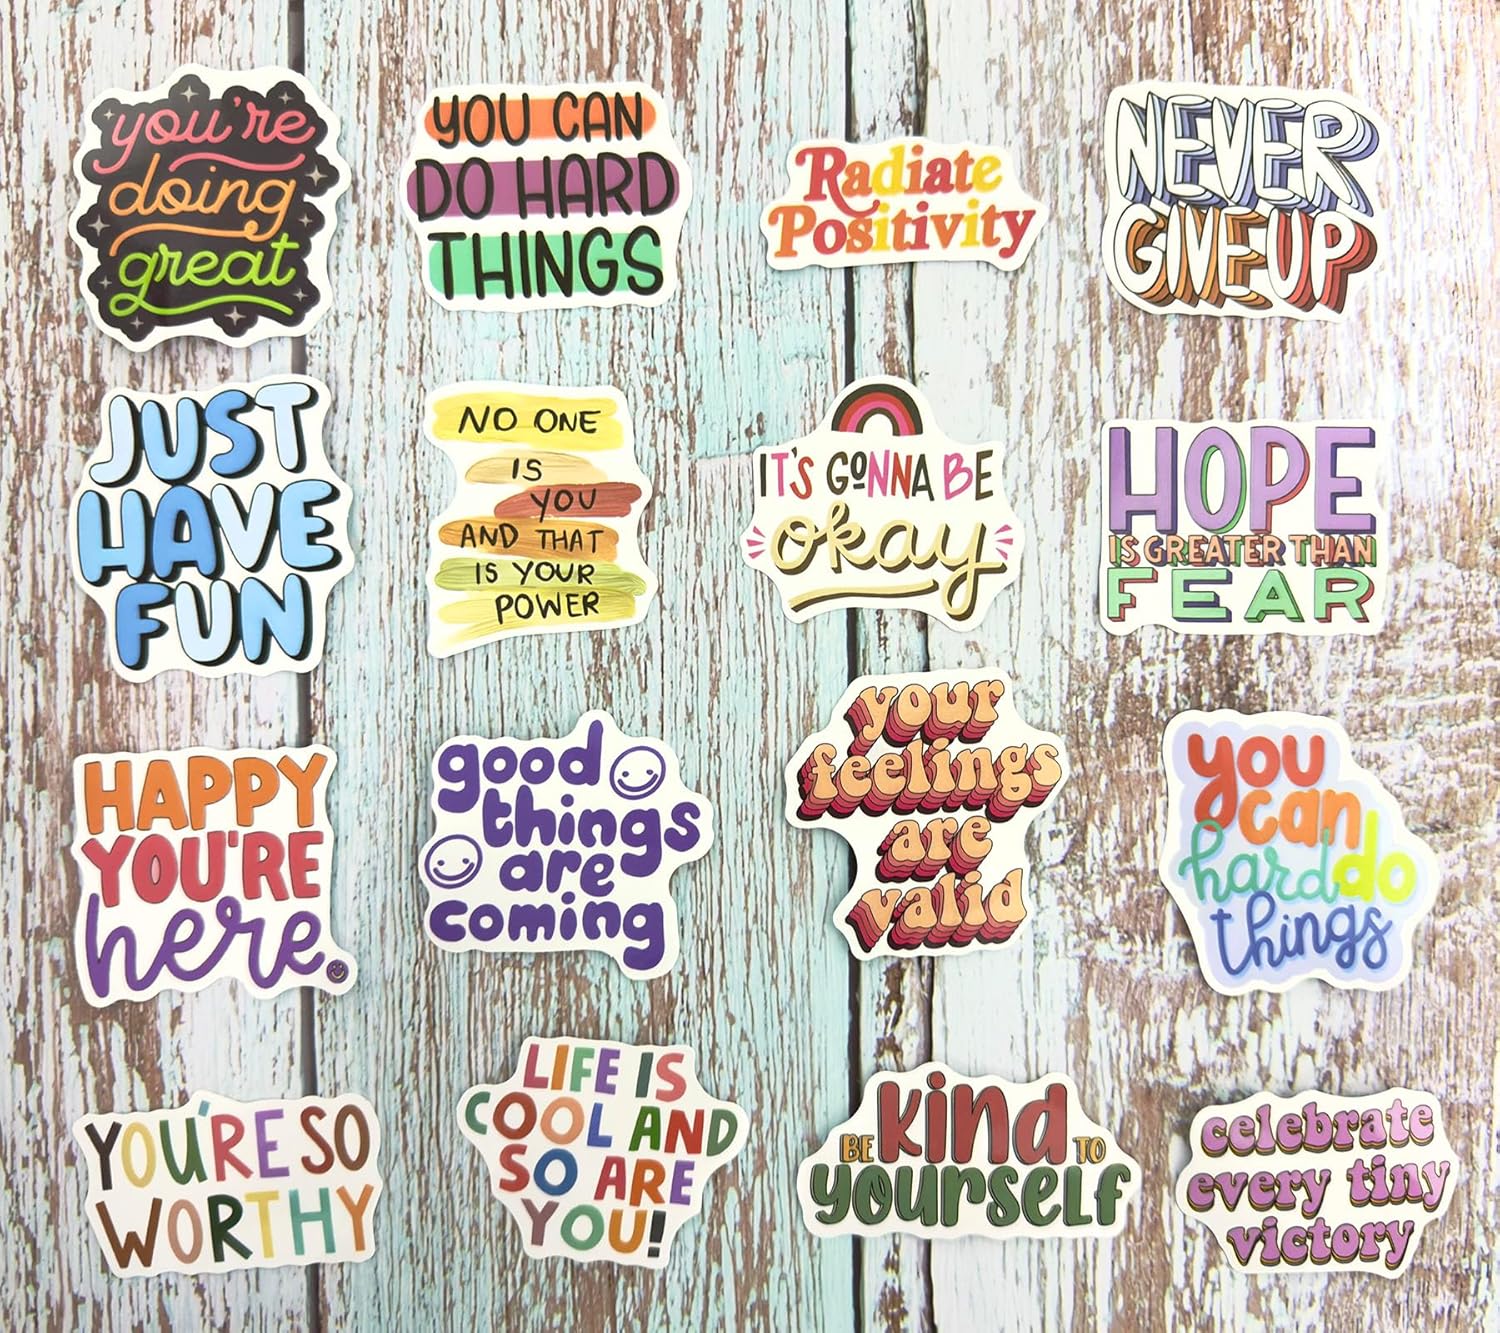 you're
doing
great
YOU CAN
DO HARD
THINGS
Radiate
Positivity
NEVER
GIVE UP
JUST
HAVE
FUN
NO ONE
IS
YOU
AND THAT
IS YOUR
POWER
IT'S GONNA BE
okay
HOPE
IS GREATER THAN
FEAR
HAPPY
YOU'RE
here.
good
things
are
coming
your
feelings
are
valid
you
can
hard do
things
YOU'RE SO
WORTHY
LIFE IS
COOL AND
SO ARE
YOU!
BE kind TO
yourself
celebrate
every tiny
victory